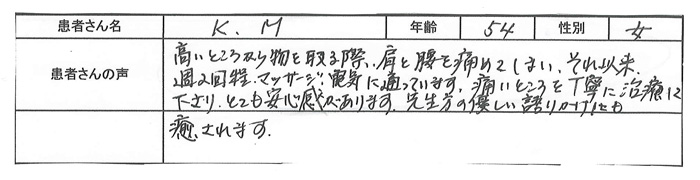 患者さん名 K. M 年齢 54 性別 女
患者さんの声 高いところから物を取る際、肩と腰を痛めてしまい、それ以来、
週2回程、マッサージ、電気に通っています。痛いところを丁寧に治療して
下さり、とても安心感があります。先生方の優しい語りかけにも
癒されます。